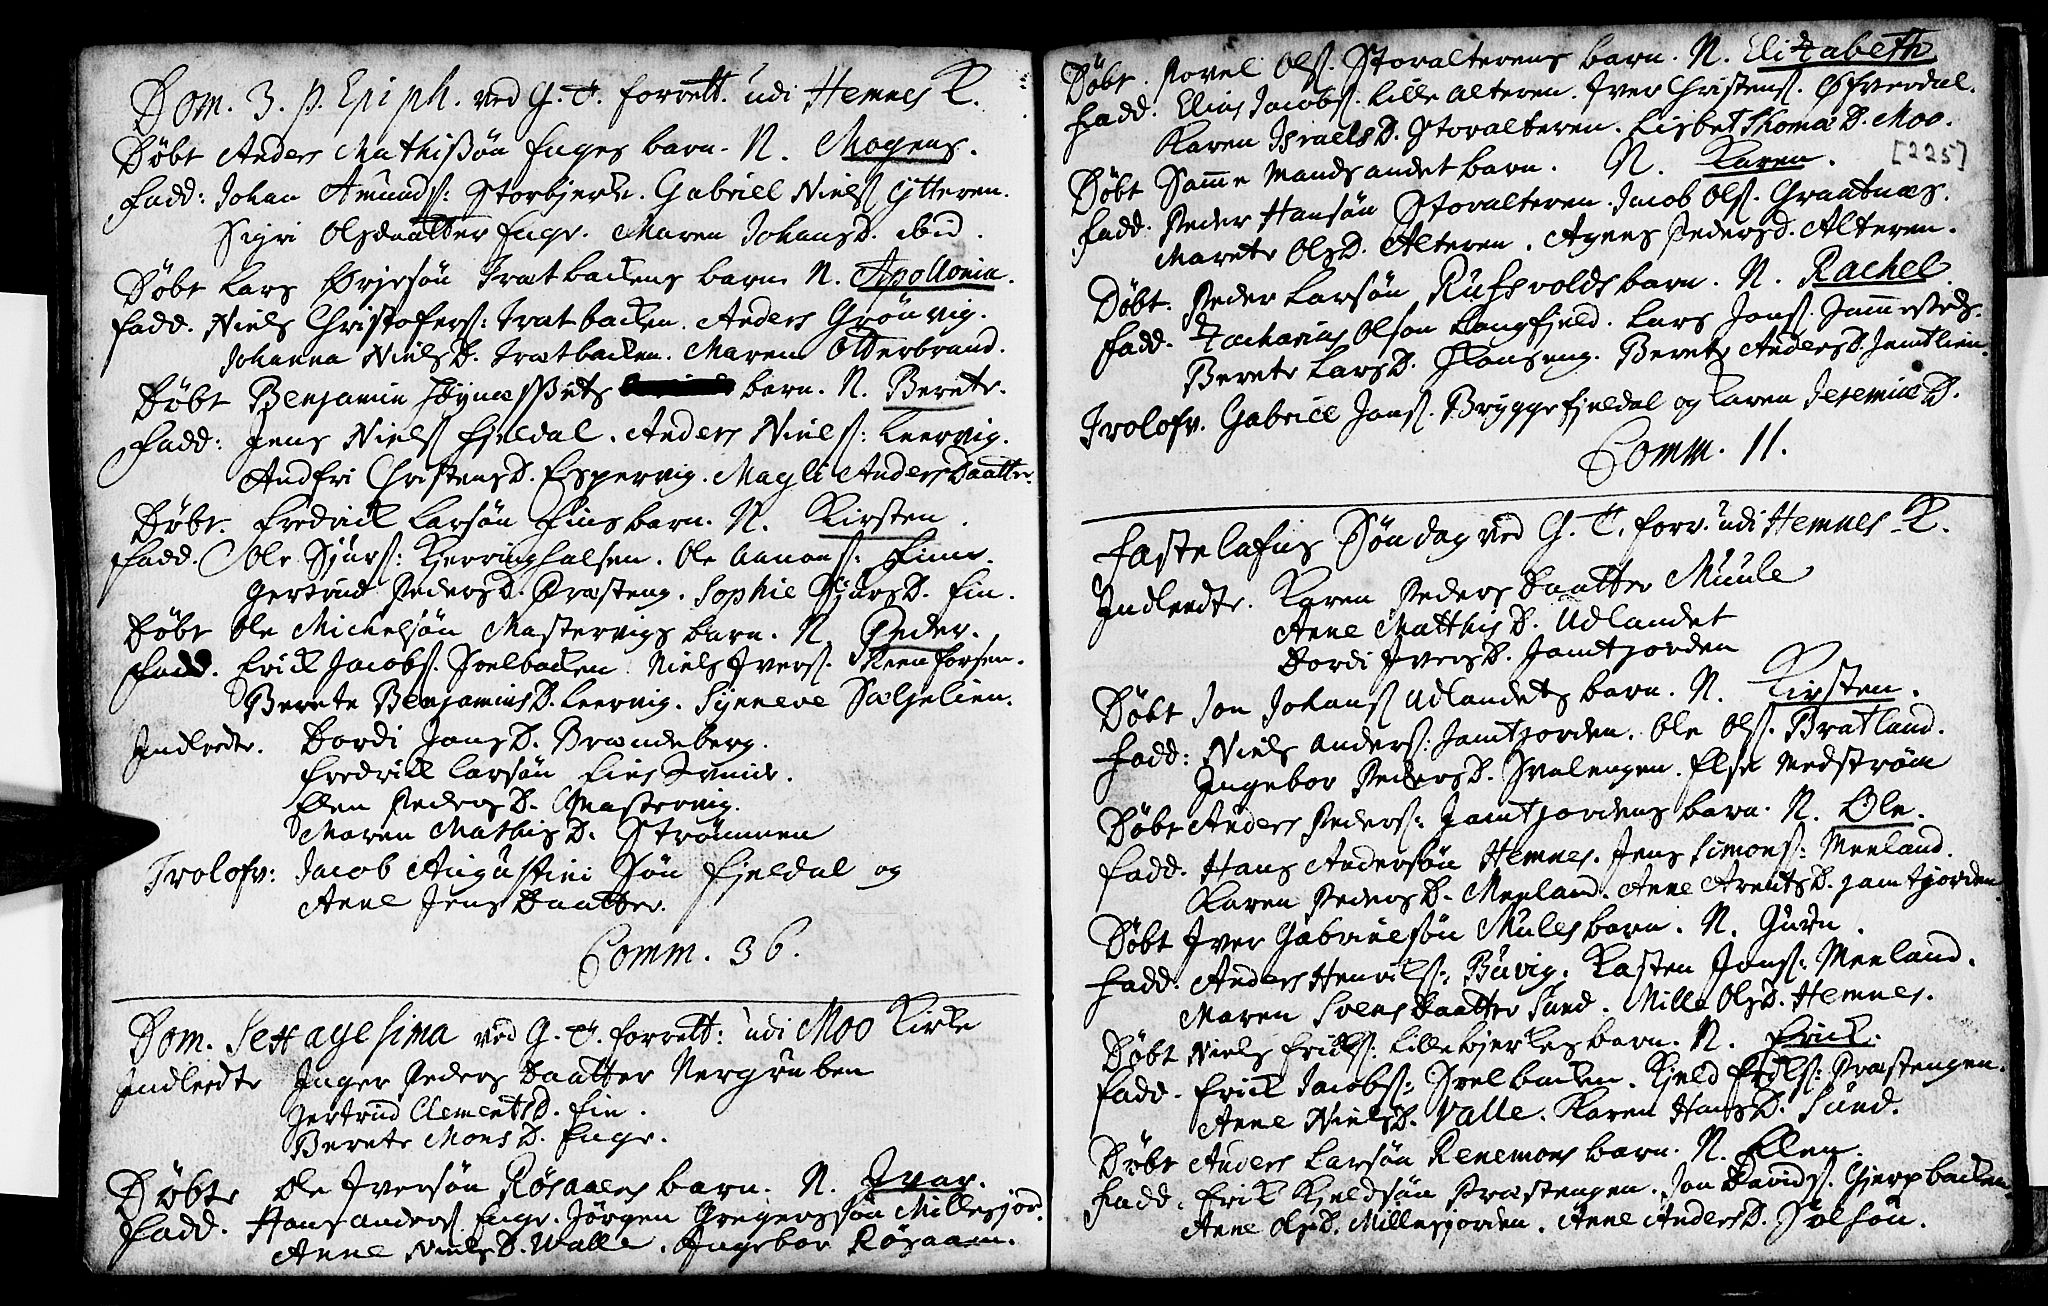 Dom. 3. p. Epiph. ved G. T. forrett. udi Hemnes K.
Døbt Anders Mathisøn Enges barn. N. Mogens.
Fadd: Johan Amunds: Storbjerk. Gabriell Niels Ytteren.
Sigri Olsdaatter Enge. Maren Johans D. ibid.
Døbt Lars Ørjesøn Tratbackens barn N. Apollonia.
Fadd. Niels Christofers: Tratbacken. Anders Grönvig.
Johanna Niels D. Tratbacken. Maren Otterbrand.
Døbt Benjamin barn. N. Berete.
Fadd: Jens Niels Fjeldal. Anders Niels: Leervig.
Andfri Christens D. Espervig. Magli Anders Daatter.
Døbt. Fredrick Larsøn Fins barn. N. Kirsten.
Fadd. Ole Sjurs: Kjerringhalsen. Ole Finne.
Gertrud Peders D. Præsteng. Sophie Sjurs D. Fin.
Døbt Ole Michelsøn Mastervigs barn. N. Peder.
Fadd. Erick Jacobs. Svelbacken. Niels Ivers. Skeenforsen.
Berete Benjamins D. Leervig. Synneve Sæljelien.
Indleedte. Dordi Jons D. Brændeberg.
Fredrick Larsøn Fins
Elen Peders D. Mastervig.
Maren Mathis D. Strømmen
Trolofv: Jacob Augustini Søn Fjeldal og
Anne Jens Daatter.
Comm. 36.
Dom. Sexagesima ved G. T. forrett: udi Moo Kirke
Indleedte Inger Peders Daatter Nergruben
Gertrud Clements D. Fin.
Berete Mons D. Enge.
Døbte Ole Iversøn Røsaaens barn. N. Ivar.
Fadd. Hans Anders Enge. Jørgen Gregerssøn Millesjor.
Anne Niels D. Walle. Ingebor Røsaaen.
Døbt. Povel Ols. Storalterens barn. N. Elizabeth
Fadd. Elias Jacobs. Lille Alteren. Iver Christens. Øfverdal.
Karen Israels D. Storalteren. Lisbet Thomæ D. Moo.
[225]
Døbt Samme Mands andet barn. N. Karen.
Fadd. Peder Hansøn Storalteren. Jacob Ols. Graatnæs.
Marete Ols D. Alteren. Agnes Peders D. Alteren.
Døbt. Peder Larsøn Rufsvolds barn. N. Rachel
Fadd. Zacharias Olson Langfjeld. Lars Jons. Jammesteds.
Berete Lars D. Hanseng. Berete Anders D. Jemtlien.
Trolofv. Gabriel Jons. Bryggefjeldal og Karen Jeremiæ D.
Comm. 11.
Fastelafns Søndag ved G. T. forr. udi Hemnes K.
Indleedte. Karen Peders Daatter Muule
Anne Matthis D. Udlandet
Dordi Ivers D. Jamtjorden
Døbt Jon Johans Udlandets barn. N. Kirsten.
Fadd: Niels Anders: Jamtjorden. Ole Ols. Bratland.
Ingebor Peders D. Svalengen. Else Medstrøm
Døbt Anders Peders: Jamtjordens barn. N. Ole.
Fadd. Hans Andersøn Hemnes. Jens Simons: Meeland.
Karen Peders D. Meeland. Anne Arents D. Jamtjorden
Døbt Iver Gabrielsøn Mules barn. N. Guru.
Fadd. Anders Henriks: Buvig. Kasten Jons: Meeland.
Maren Svens Daatter Sund. Mille Ols D. Hemnes.
Døbt Niels Ericks: Lillebjerkes barn. N. Erick.
Fadd. Erick Jacobs: Svelbacken. Kjeld Ericks: Præstengen.
Anne Niels D. Valle. Karen Hans D. Sund.
Døbt Anders Larsøn Renemoes barn. N. Ellen.
Fadd. Erik Kjeldsøn Præstengen. Jon Davids. Gjerpbacken.
Anne Ols D. Millesjorden. Anne Anders D. Solføn.